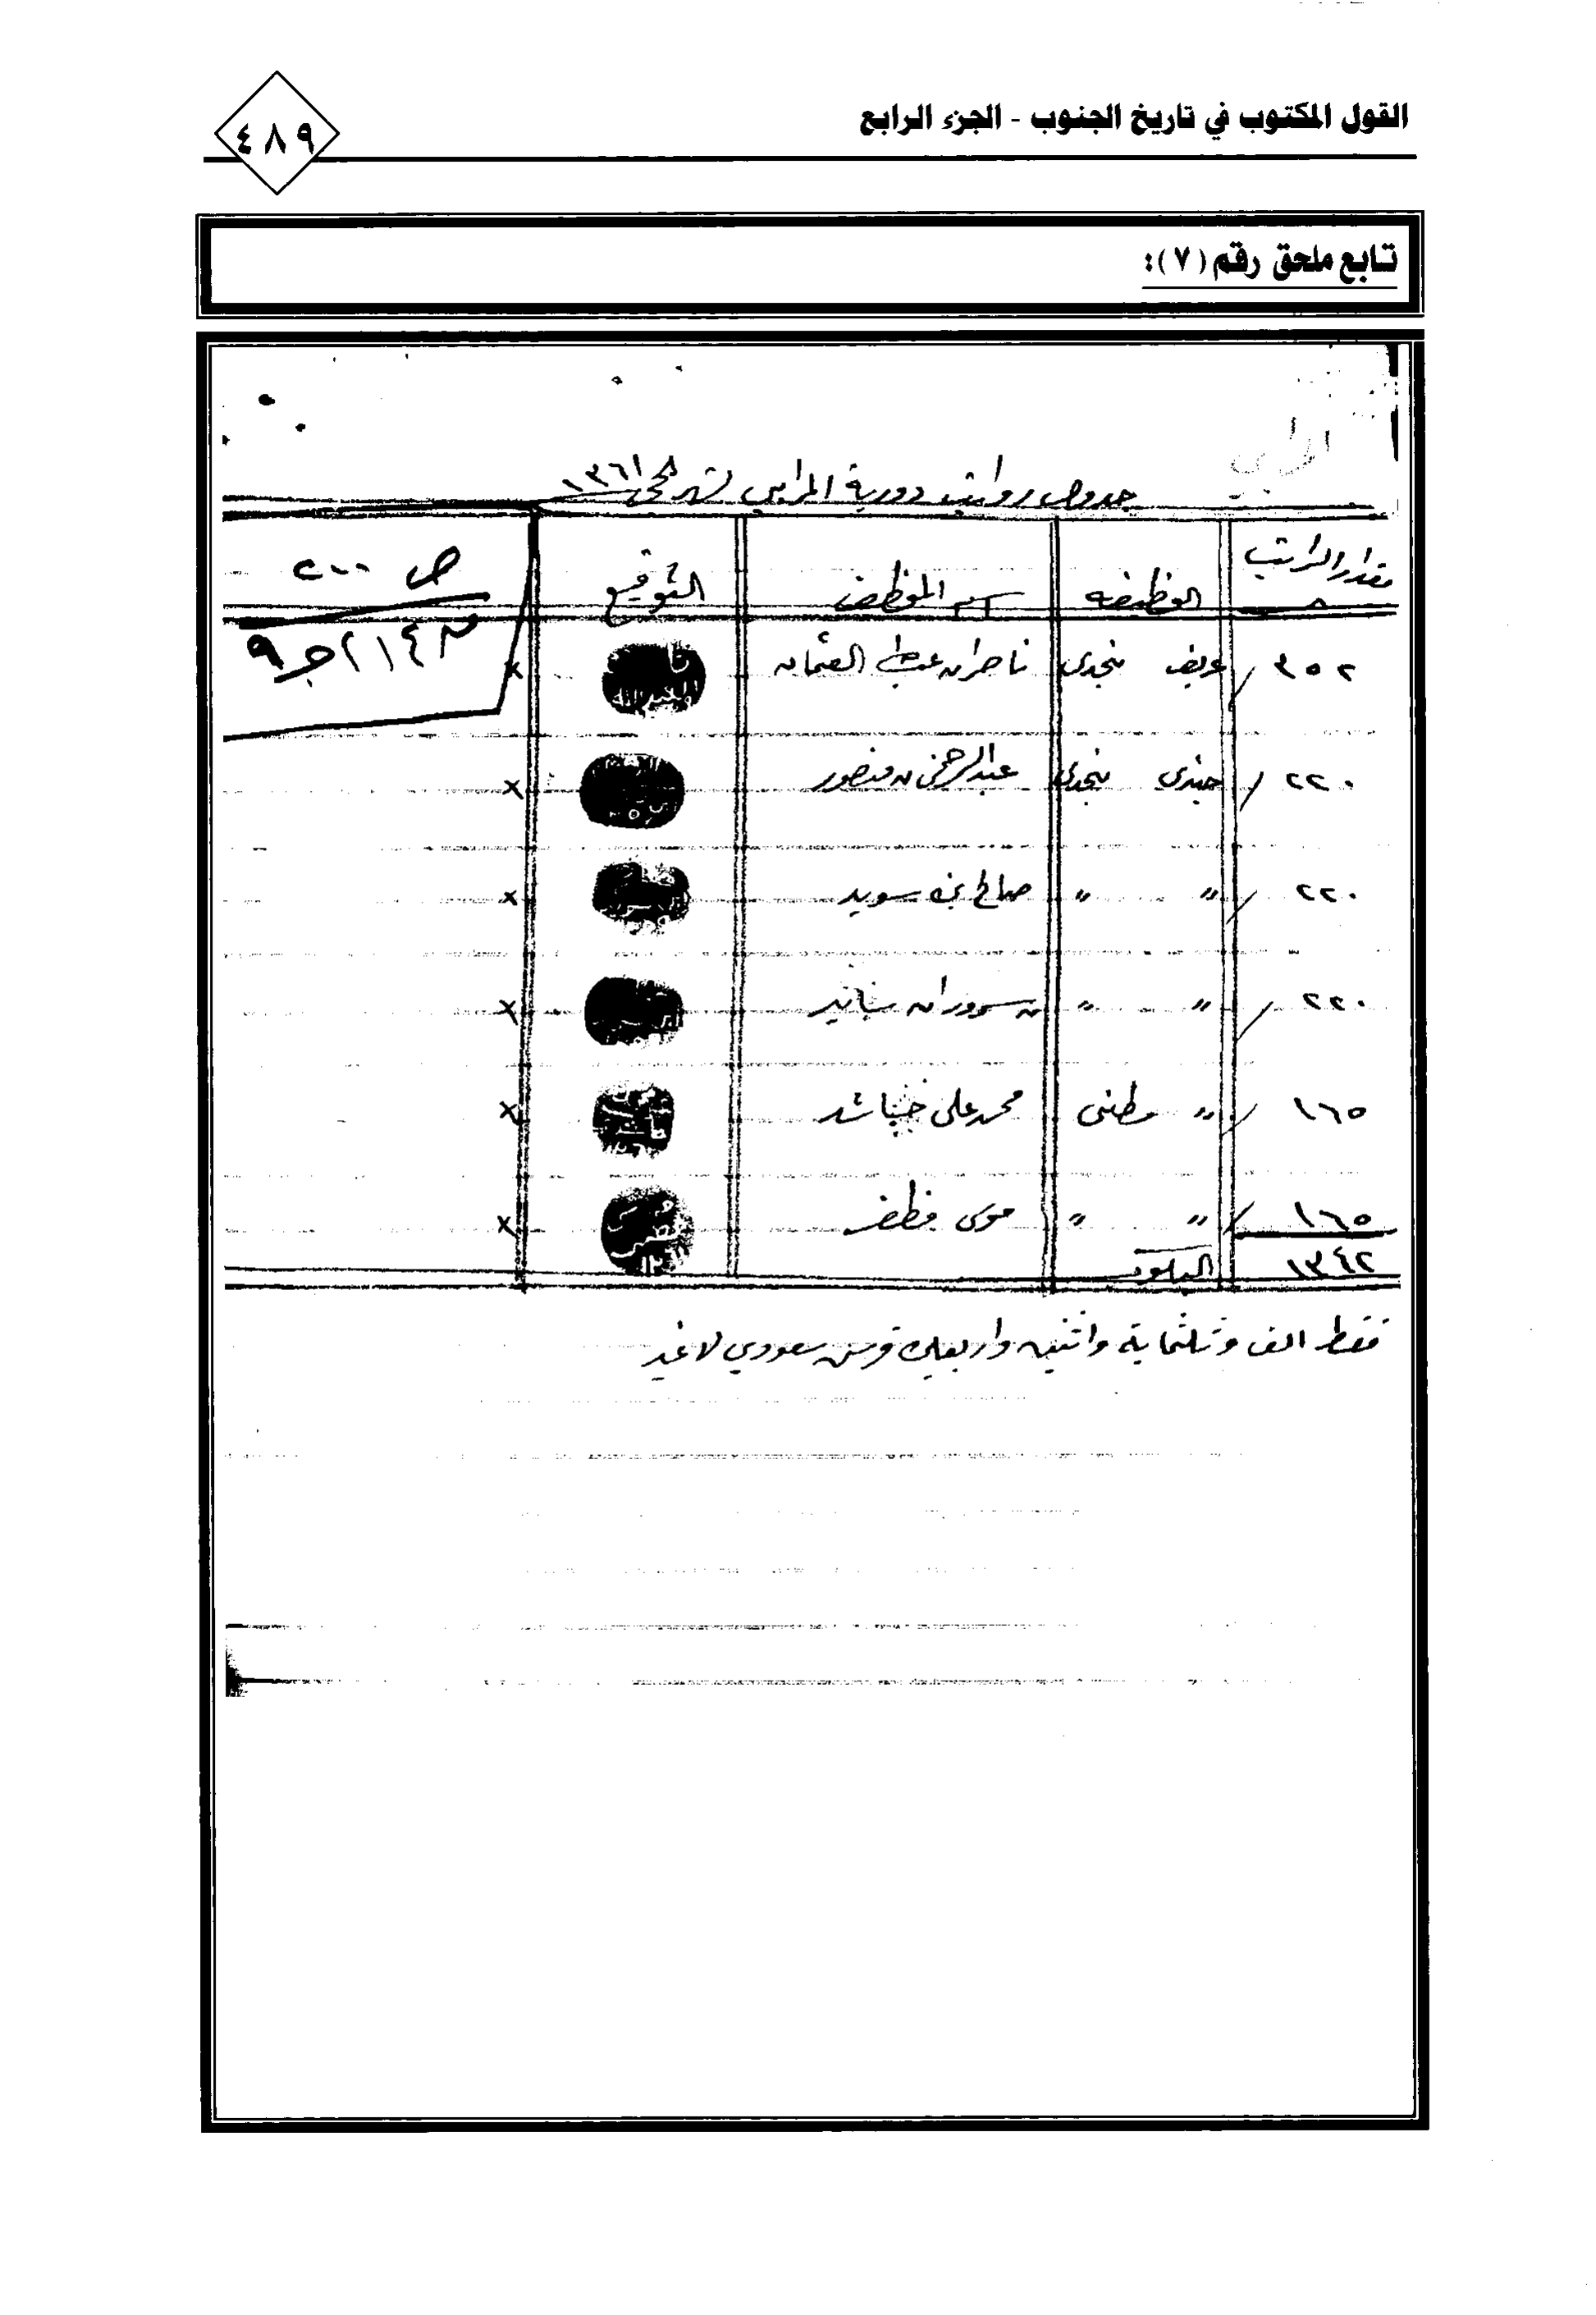 القول المكتوب في تاريخ الجنوب - الجزء الرابع
٤٨٩
تابع ملحق رقم (٧):
جدول رواتب دورية المرابي لشهر محرم ١٣٦١
مقدار الراتب الوظيفه اسم الموظف التوقيع
ص ٢٠٠
٢١٤ ج ٩
٣٥٢ عريف نجدي ناصر بن عبدالله العثمان ×
٢٢٠ جندي نجدي عبدالرحمن بن منصور ×
٢٢٠ " " صالح بن سويد ×
٢٢٠ " " ×
١٦٥ " وطني محمد علي ×
١٦٥ " " موسى ×
١٣٤٢
فقط الف وثلثماية واثنين واربعين قرش سعودي لاغير